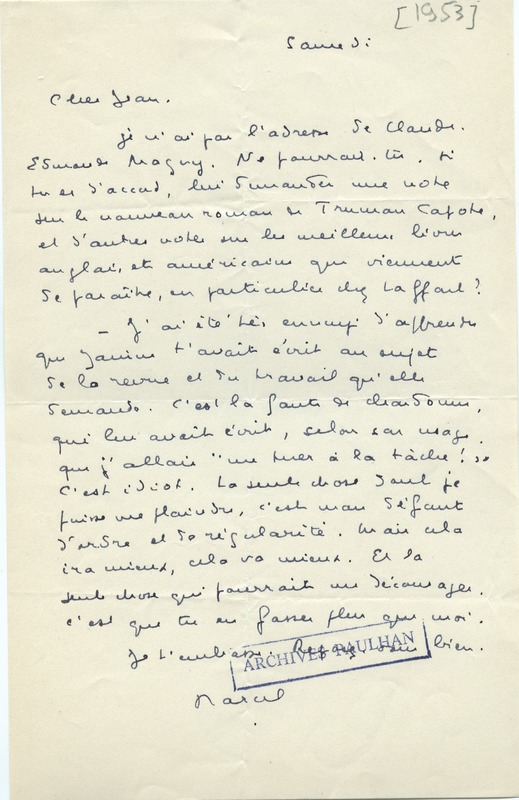 [1953]
Samedi
Cher Jean.
Je n'ai pas l'adresse de Claude.
Edmonde Magny. Ne pourrais-tu, si
tu es d'accord, lui demander une note
sur le nouveau roman de Truman Capote,
et d'autres notes sur les meilleurs livres
anglais et américains qui viennent
de paraître, en particulier chez Laffont?
- J'ai été très ennuyé d'apprendre
que Janine t'avait écrit au sujet
de la revue et du travail qu'elle
demande. C'est la faute de Chardonne,
qui lui avait écrit, selon son usage,
que j'allais "me tuer à la tâche!"
C'est idiot. La seule chose dont je
puisse me plaindre, c'est mon défaut
d'ordre et de régularité. Mais cela
ira mieux, cela va mieux. Et la
seule chose qui pourrait me décourager,
c'est que tu en fasses plus que moi.
Je t'embrasse. Repose-toi bien.
ARCHIVES PAULHAN
Marcel